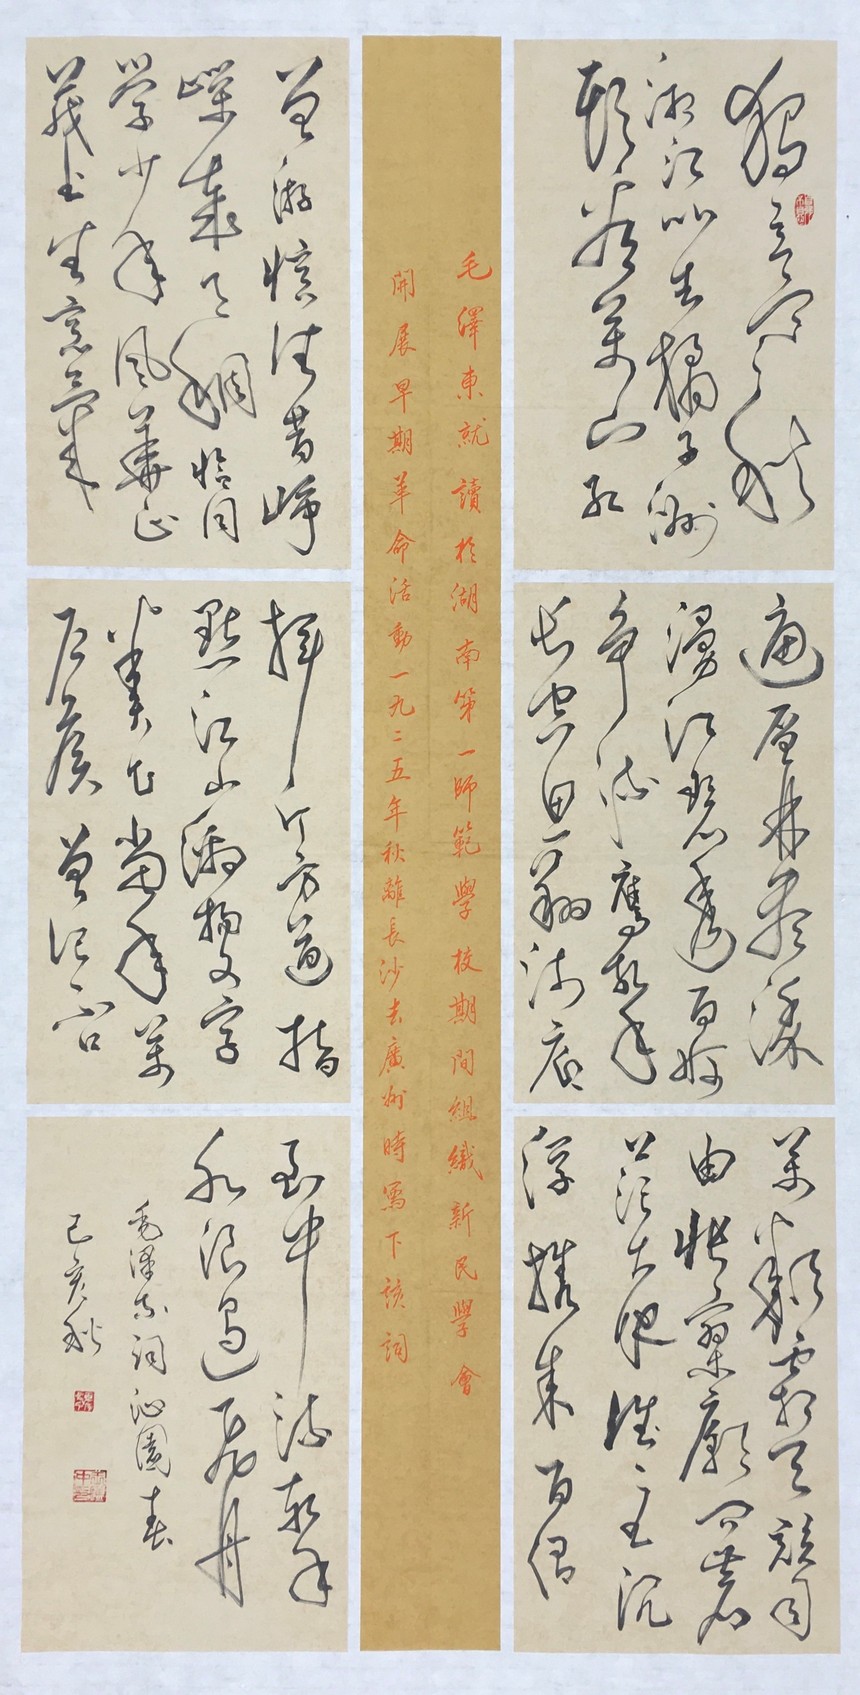 獨立寒秋
湘江北去橘子洲
頭看萬山紅
遍層林盡染
漫江碧透百舸
爭流鷹擊
長空魚翔淺底
萬類霜天競自
由悵寥廓問蒼
茫大地誰主沉
浮攜來百侶
毛澤東就讀於湖南第一師範學校期間組織新民學會
開展早期革命活動一九二五年秋離長沙去廣州時寫下該詞
曾游憶往昔崢
嶸歲月稠恰同
學少年風華正
茂書生意氣
揮斥方遒指
點江山激揚文字
糞土當年萬
戶侯曾記否
到中流擊
水浪遏飛舟
毛澤東詞沁園春
己亥秋